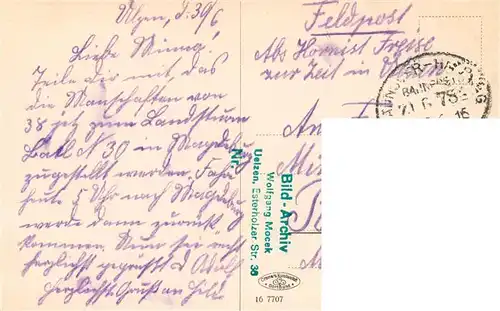 Ülzen, d. 30/6
Liebe Minna!
Teile Dir mit, das
die Manschaften von
38 jetz zum Landsturm
Batl N 30 in Magdeburg
zugestellt werden. Fahre
heute 5 Uhr nach Magdeburg
werde dann zurück
kommen. Nun sei recht
herzlichst gegrüsst d Adolf
Herzlichst Gruß an Hilde
Feldpost
Abs Hornist Preise
zur Zeit in
HANNOVER-HAMBURG
BAHNPOST
An
Bild-Archiv
Wolfgang Mocek
Uelzen, Esterholzer Str. 36
Nr.
16 7707